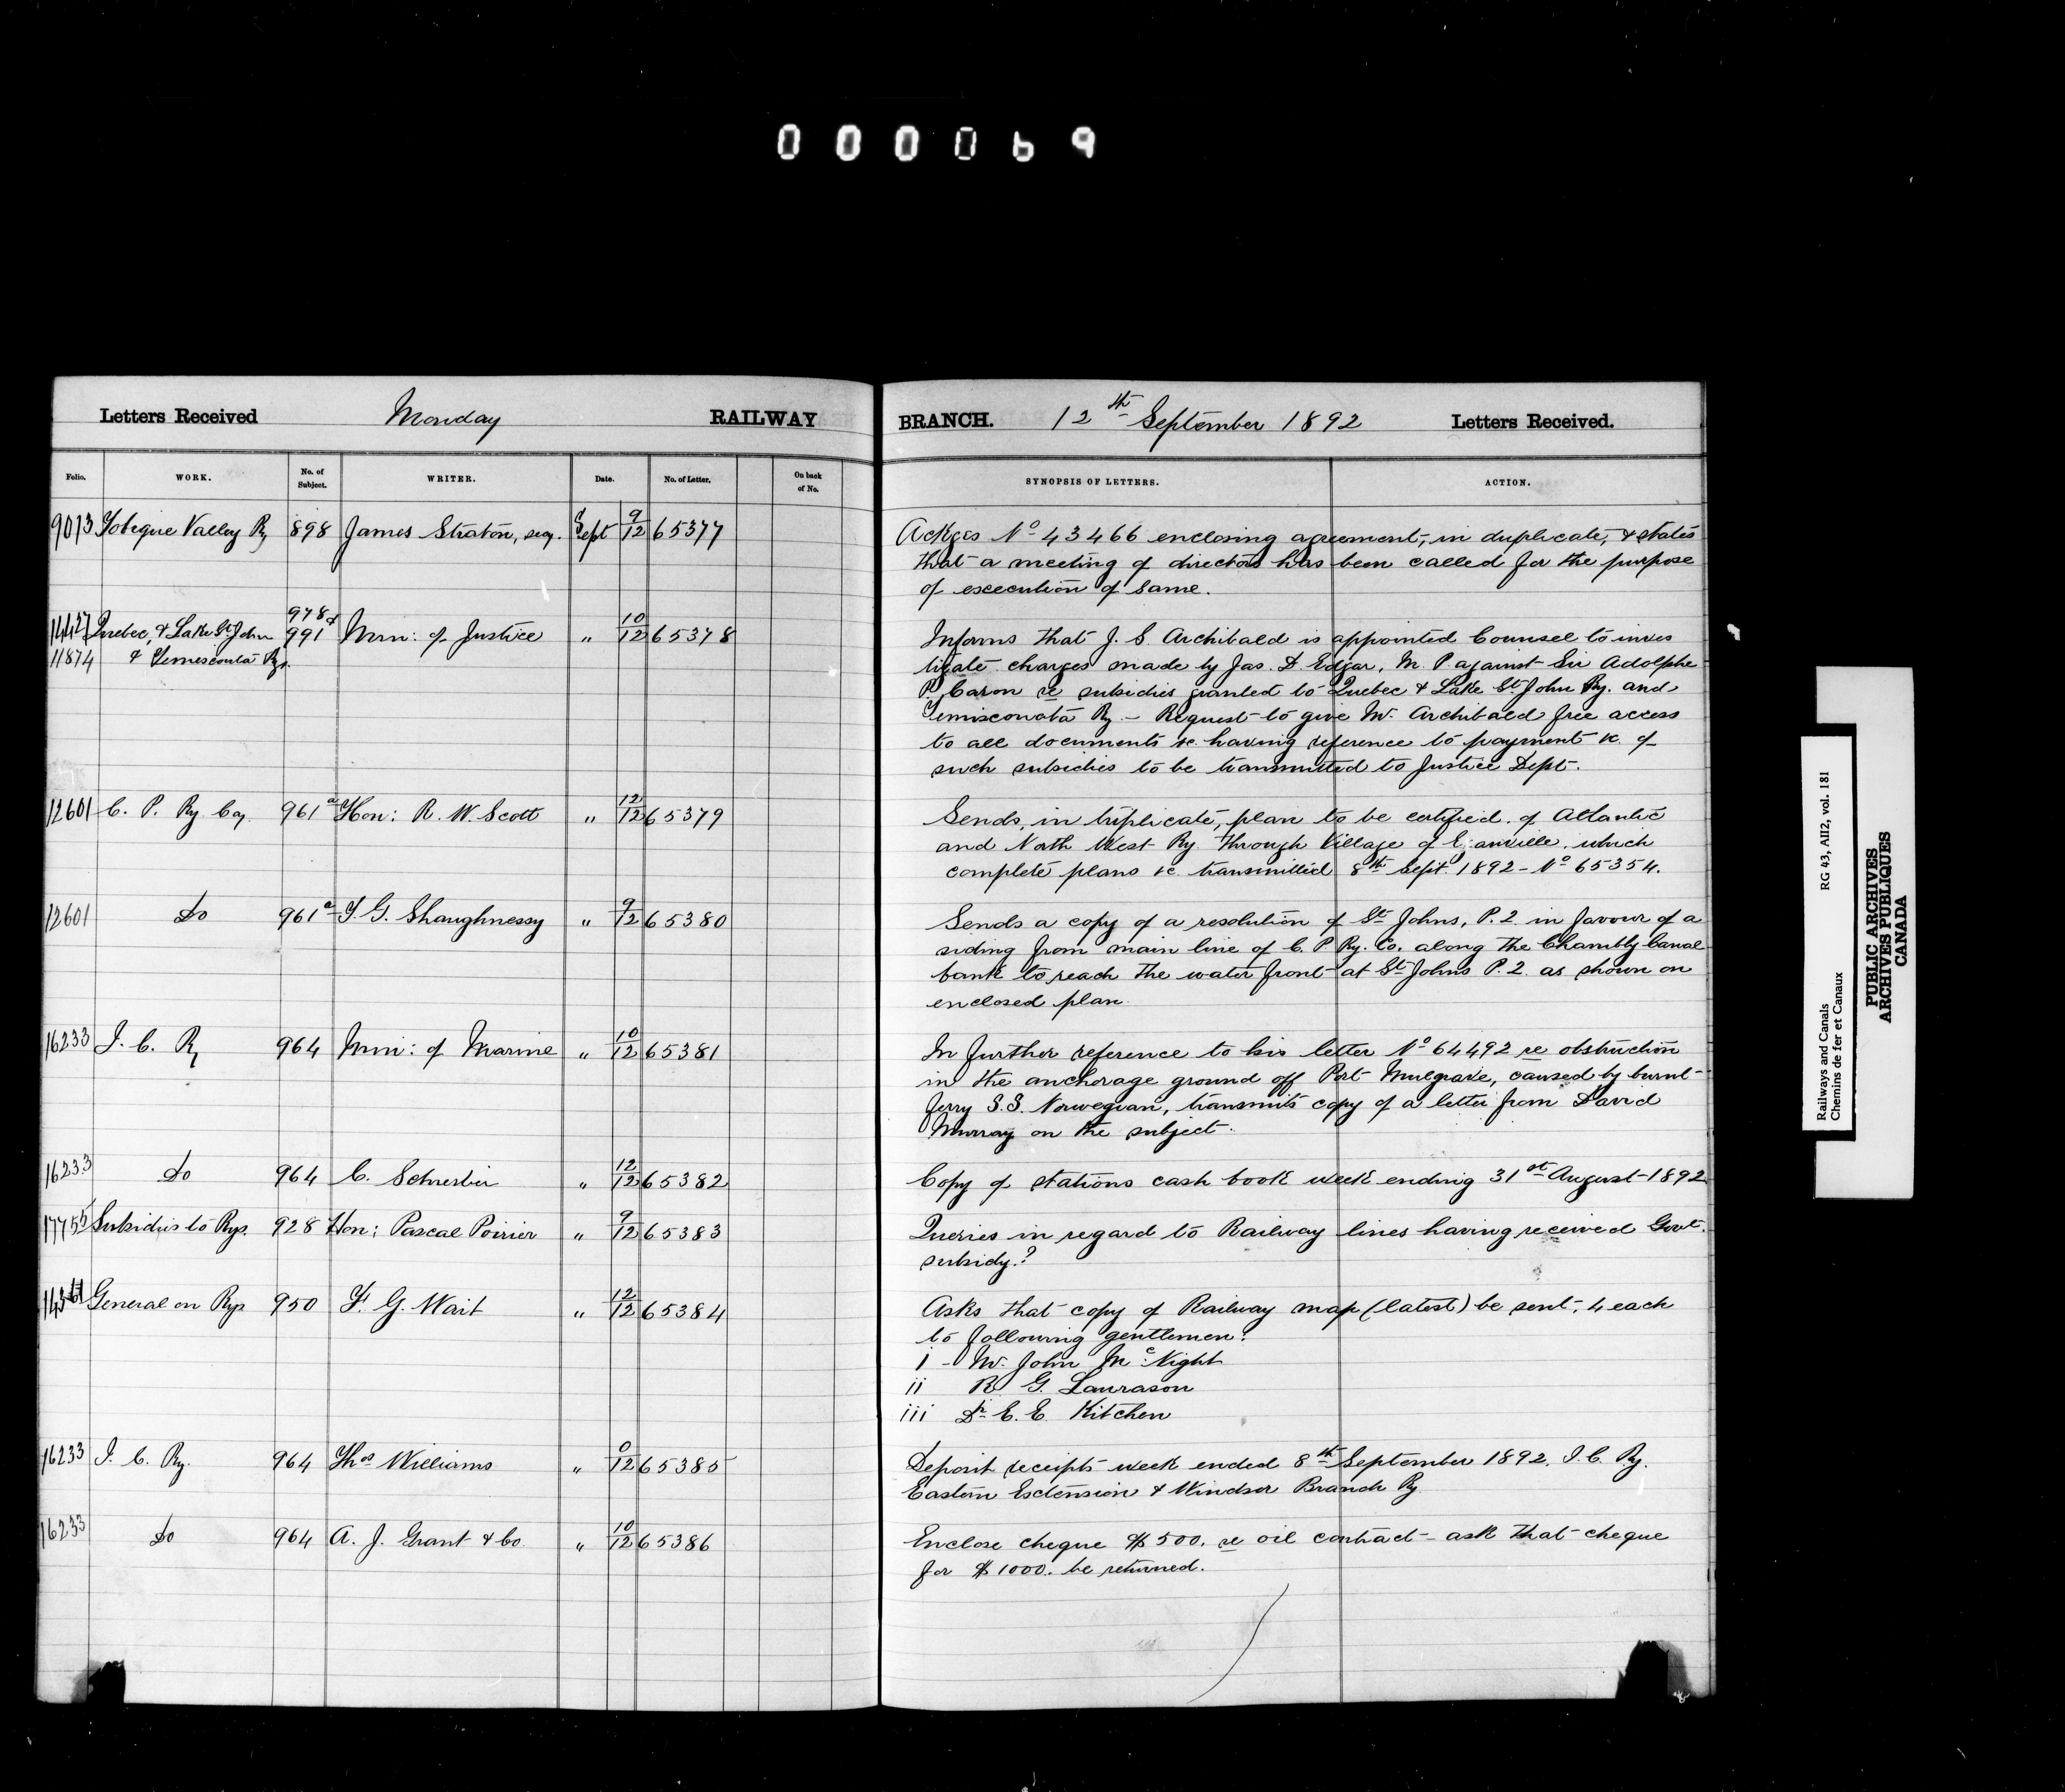 000069
Letters Received Monday RAILWAY BRANCH. 12th September 1892 Letters Received.
Folio. WORK. No. of Subject. WRITER. Date. No. of Letter. On back of No. SYNOPSIS OF LETTERS. ACTION.
9013 Tobique Valley Ry 898 James Straton, secy. Sept 9/12 65377 Ackges No 43466 enclosing agreement, in duplicate, & states
that a meeting of directors has been called for the purpose
of excecution of same.
14427 Quebec, & Lake St. John 978 & 991 Min: of Justice " 10/12 65378 Informs that J. S. Archibald is appointed Counsel to inves
11874 & Temiscouata Rys. tigate charges made by Jas. D. Edgar, M. P. against Sir Adolphe
P. Caron re subsidies granted to Quebec & Lake St. John Ry. and
Temisconata Ry. – Request to give Mr. Archibald free access
to all documents &c. having reference to payment &c. of
such subsidies to be transmitted to Justice Dept.
12601 C. P. Ry Coy. 961a Hon: R. W. Scott " 12/12 65379 Sends, in triplicate, plan to be certified of Atlantic
and North West Ry. through Village of which
complete plans &c. transmitted 8th Sept. 1892 – No 65354.
12601 Do 961a T. G. Shaughnessy " 9/12 65380 Sends a copy of a resolution of St. Johns, P. 2. in favour of a
siding from main line of C. P. Ry. Co. along the Chambly Canal
bank to reach the water front at St. Johns P. 2. as shown on
enclosed plan.
16233 I. C. Ry 964 Min: of Marine " 10/12 65381 In further reference to his letter No 64492 re obstruction
in the anchorage ground off Port Mulgrave, caused by burnt
ferry S.S. Norwegian, transmits copy of a letter from David
Murray on the subject.
16233 Do 964 C. Schreiber " 12/12 65382 Copy of stations cash book week ending 31st August 1892
17755 Subsidies to Rys. 928 Hon: Pascal Poirier " 9/12 65383 Queries in regard to Railway lines having received Govt.
subsidy.?
14361 General on Rys 950 F. G. Wait " 12/12 65384 Asks that copy of Railway map (latest) be sent, 4 each
to following gentlemen:
i – Mr. John McNight
ii R. G. Laurason
iii Dr. E. E. Kitchen
16233 I. C. Ry. 964 Thos Williams " 0/12 65385 Deposit receipts week ended 8th September 1892. I. C. Ry.
Eastern Extension & Windsor Branch Ry
16233 Do 964 A. J. Grant & Co " 10/12 65386 Enclose cheque $500. re oil contract – ask that cheque
for $1000. be returned.
Railways and Canals RG 43, AII2, vol. 181
Chemins de fer et Canaux
PUBLIC ARCHIVES
ARCHIVES PUBLIQUES
CANADA